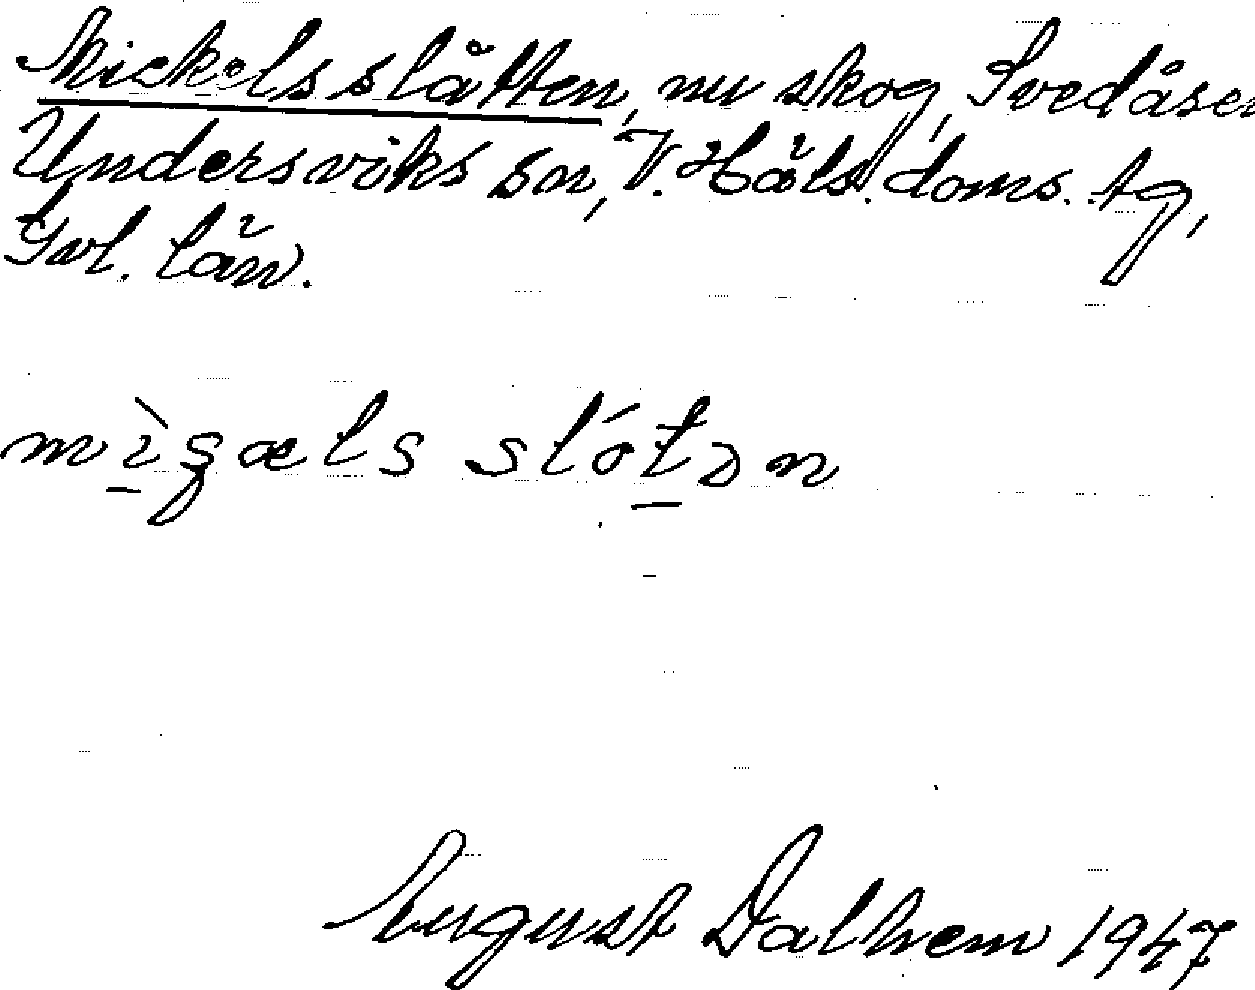 Mickelsslåtten, nu skog, Svedåsen
Undersviks sn, V. Häls. doms. tg,
Gvl. län.
August Dalhem 1947